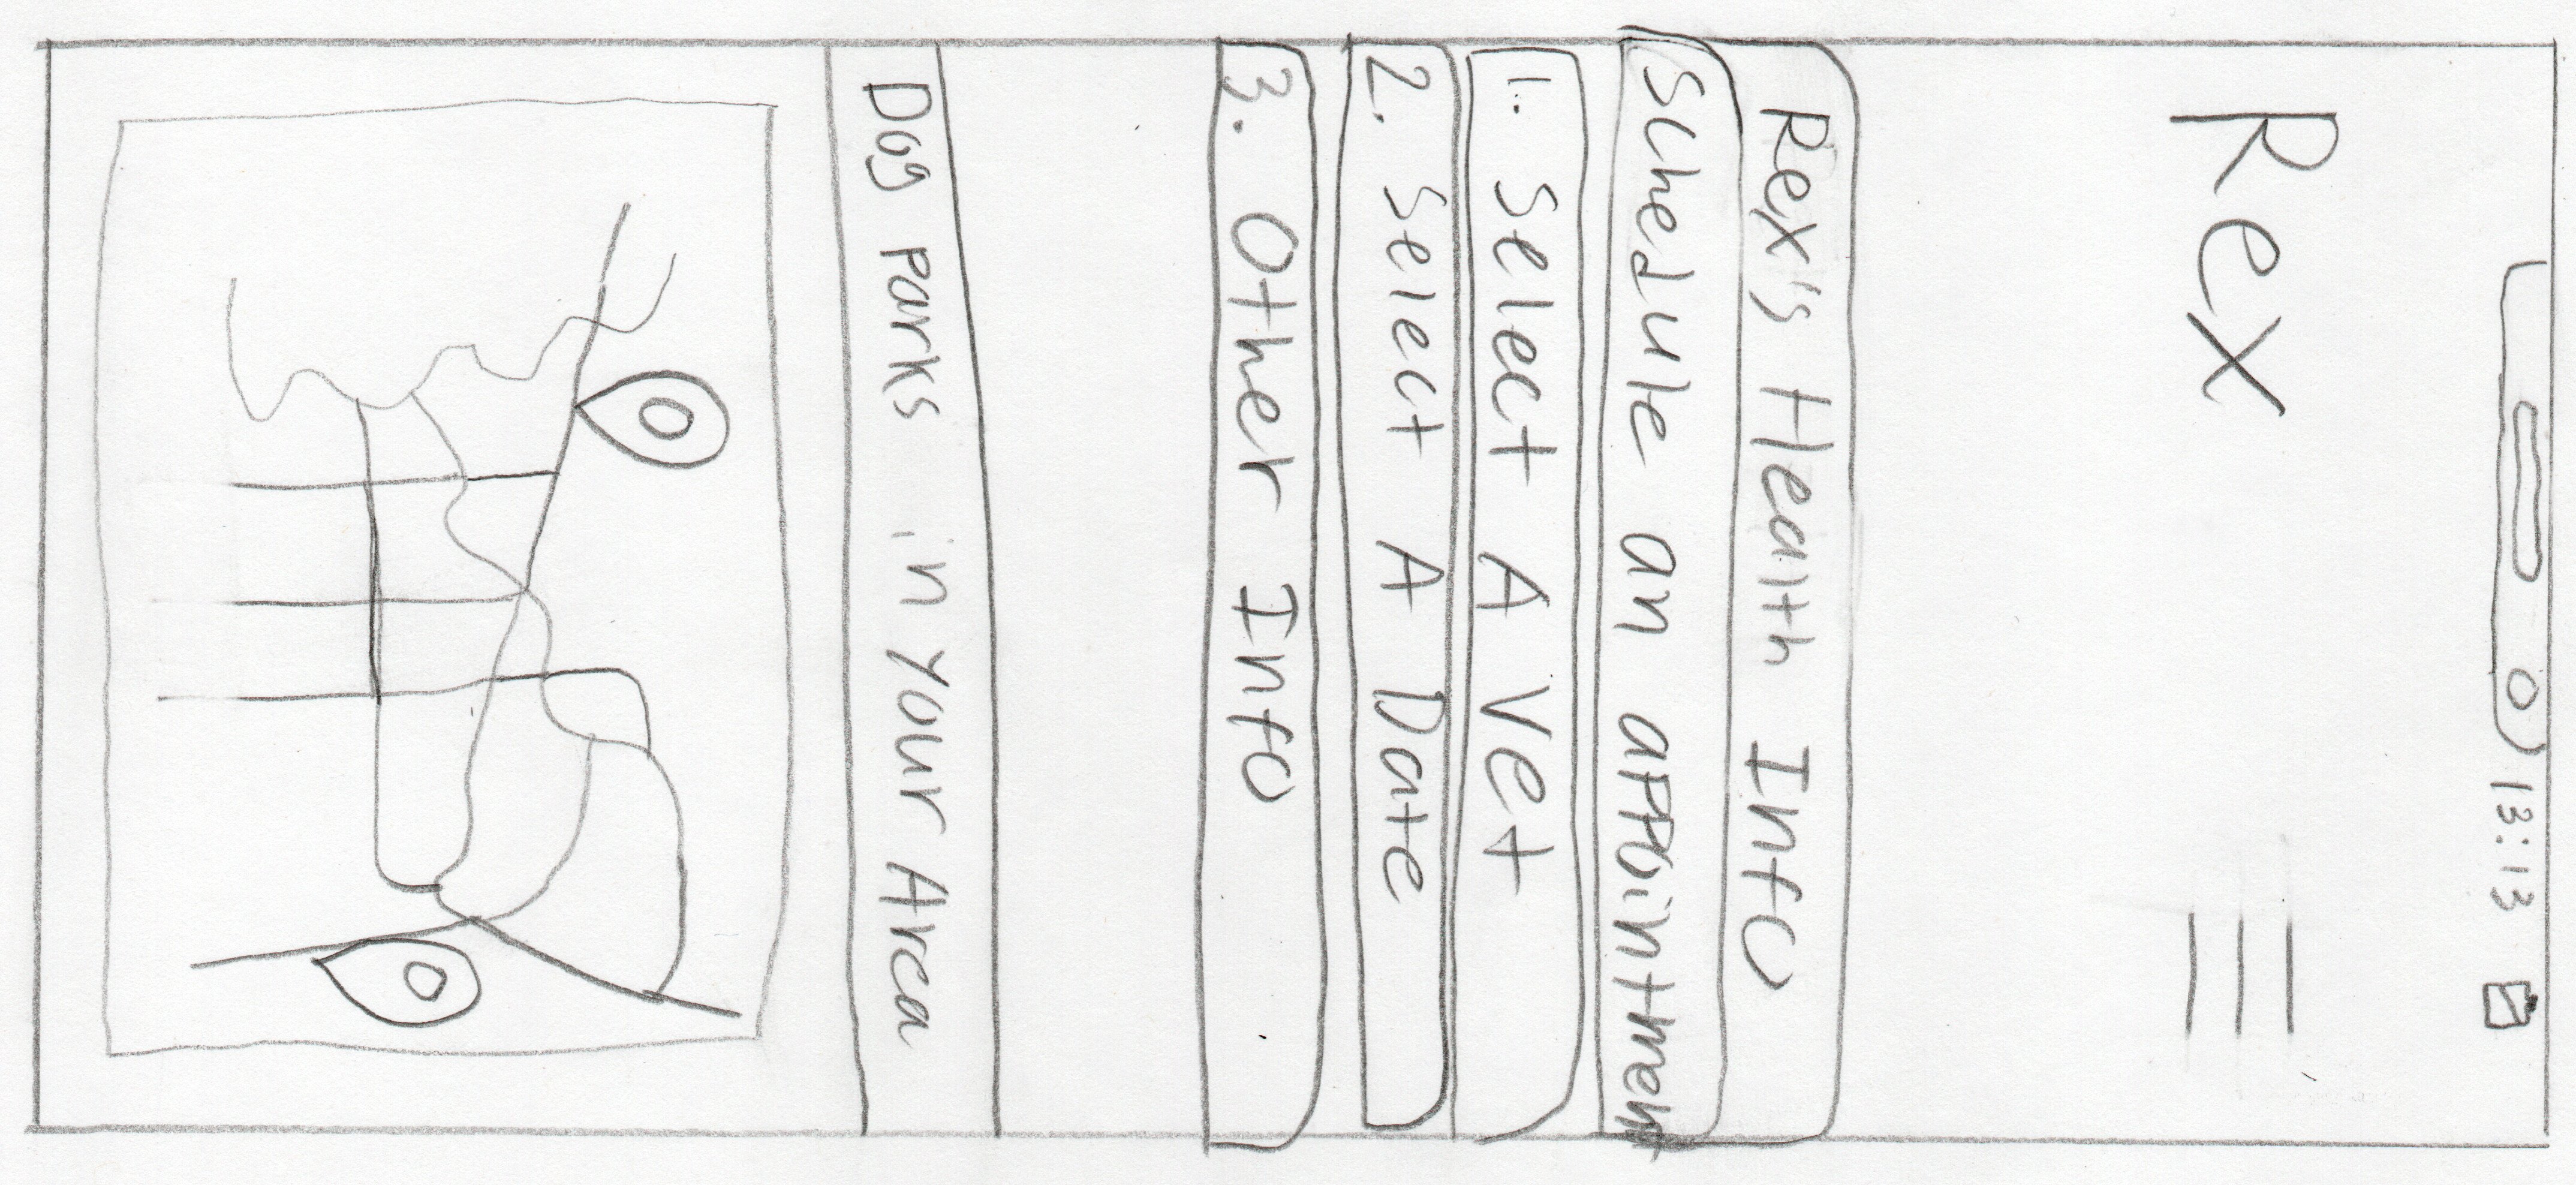 13:13
Rex
Rex's Health Info
Schedule an appointment
1. Select A Vet
2. Select A Date
3. Other Info
Dog parks in your Area